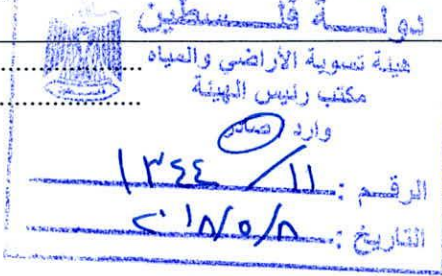 دولة فلسطين
هيئة تسوية الأراضي والمياه
مكتب رئيس الهيئة
وارد صادر
الرقم : ١١ / ١٣٤٤
التاريخ : ٢٠١٨/٥/٨